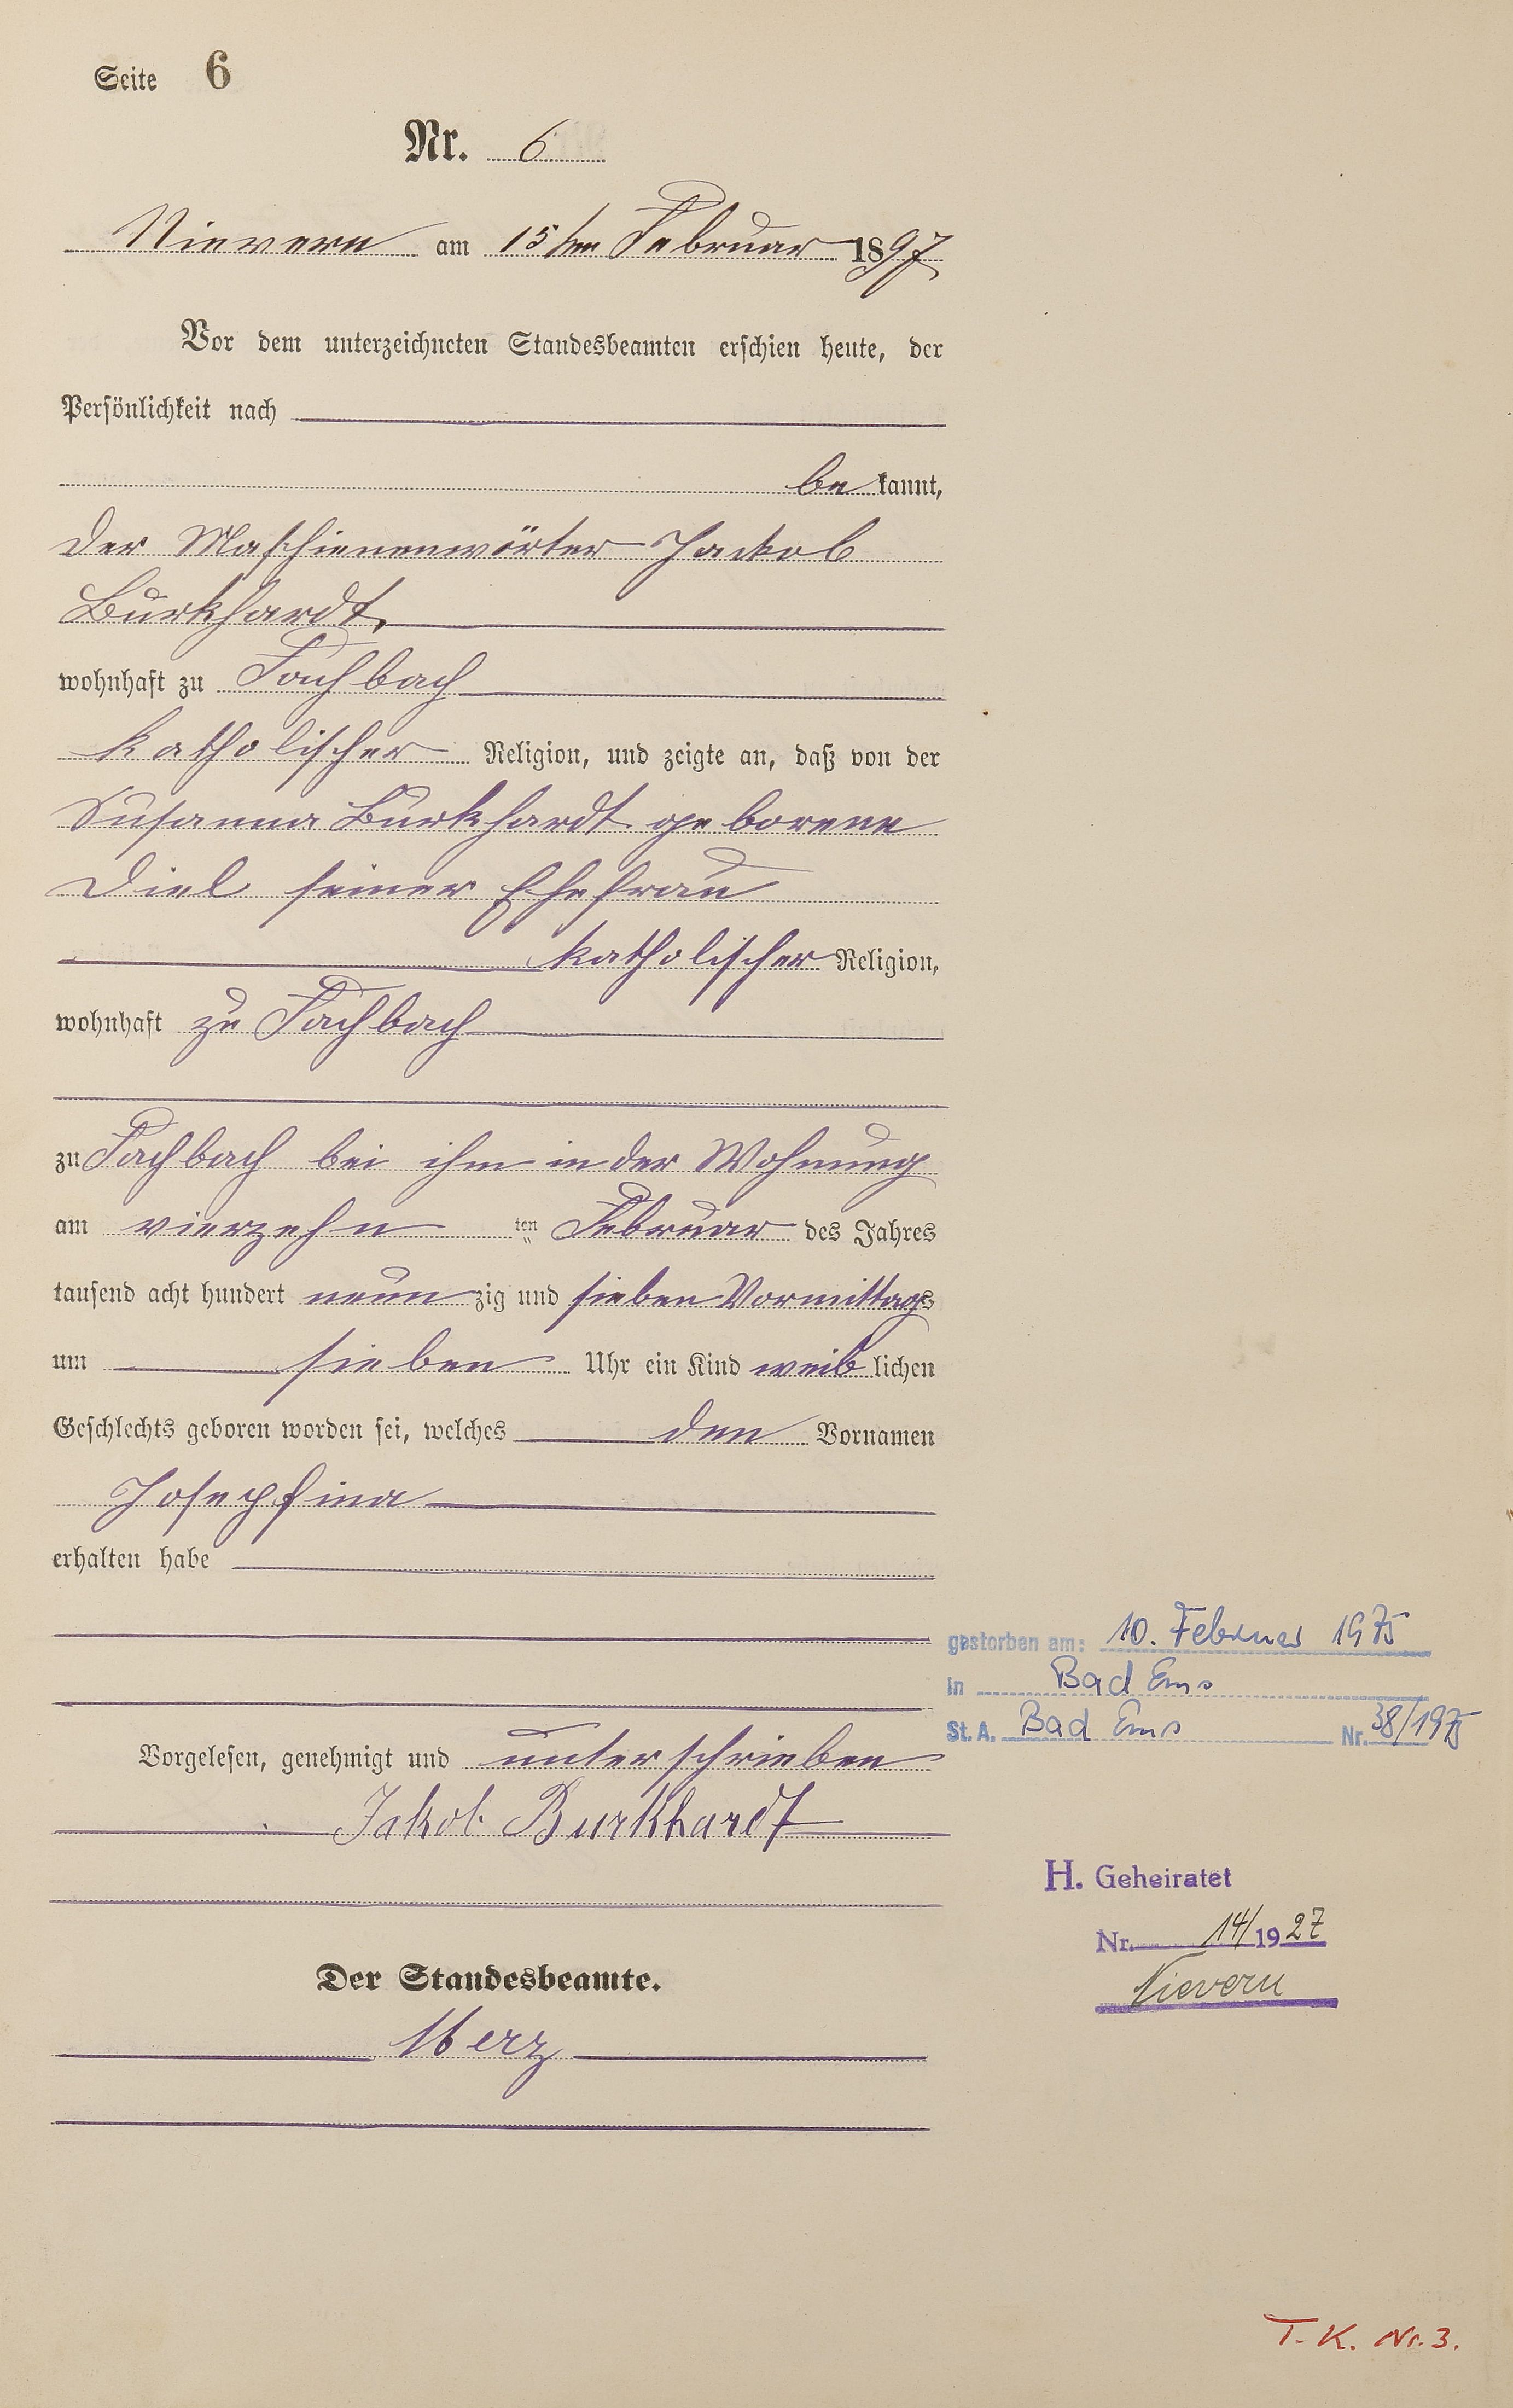 Seite 6
Nr. 6
Nievern am 15ten Februar 1897
Vor dem unterzeichneten Standesbeamten erschien heute, der
Persönlichkeit nach
be kannt,
der Maschienenwörter Jackob
Burkhardt,
wohnhaft zu Fachbach
katholischer Religion, und zeigte an, daß von der
Susanna Burkhardt geborene
Diel seiner Ehefrau
katholischer Religion,
wohnhaft zu Fachbach
zu Fachbach bei ihm in der Wohnung
am vierzehn ten Februar des Jahres
tausend acht hundert neun zig und sieben Vormittags
um sieben Uhr ein Kind weib lichen
Geschlechts geboren worden sei, welches den Vornamen
Josephina
erhalten habe
gestorben am: 10. Februar 1975
in Bad Ems
St. A. Bad Ems Nr. 38/1975
Vorgelesen, genehmigt und unterschrieben
Jakob Burkhardt
H. Geheiratet
Nr. 14/1927
Nievern
Der Standesbeamte.
Merz
T. K. Nr. 3.